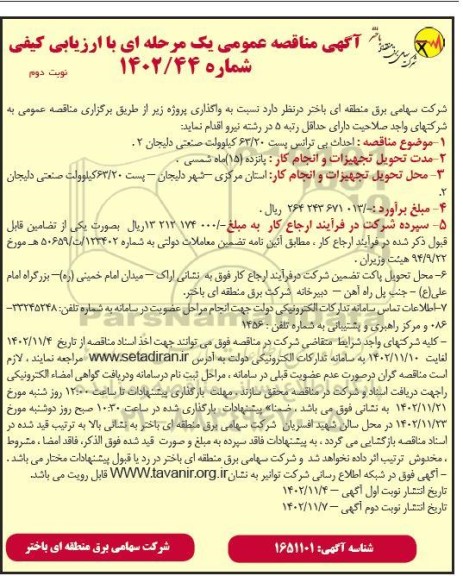 آگهی مناقصه عمومی یک مرحله ای با ارزیابی کیفی
شماره ۱۴۰۲/۴۴
نوبت دوم
شرکت سهامی برق منطقه ای باختر
شرکت سهامی برق منطقه ای باختر درنظر دارد نسبت به واگذاری پروژه زیر از طریق برگزاری مناقصه عمومی به
شرکتهای واجد صلاحیت دارای حداقل رتبه ۵ در رشته نیرو اقدام نماید:
۱-موضوع مناقصه : احداث بی ترانس پست ۶۳/۲۰ کیلوولت صنعتی دلیجان ۲ .
۲-مدت تحویل تجهیزات و انجام کار : پانزده (۱۵)ماه شمسی .
۳- محل تحویل تجهیزات و انجام کار: استان مرکزی –شهر دلیجان – پست ۶۳/۲۰کیلوولت صنعتی دلیجان
۲.
۴- مبلغ برآورد :-/۰۱۳ ۶۷۱ ۲۴۳ ۲۶۴ ریال .
۵ - سپرده شرکت در فرآیند ارجاع کار به مبلغ-/۰۰۰ ۱۷۴ ۲۱۲ ۱۳ریال بصورت یکی از تضامین قابل
قبول ذکر شده در فرآیند ارجاع کار ، مطابق آئین نامه تضمین معاملات دولتی به شماره ۱۲۳۴۰۲/ت۵۰۶۵۹ هـ مورخ
۹۴/۹/۲۲ هیئت وزیران .
۶- محل تحویل پاکت تضمین شرکت درفرآیند ارجاع کار فوق به نشانی اراک – میدان امام خمینی (ره)– بزرگراه امام
علی(ع) – جنب پل راه آهن – دبیرخانه شرکت برق منطقه ای باختر.
۷-اطلاعات تماس سامانه تدارکات الکترونیکی دولت جهت انجام مراحل عضویت در سامانه به شماره تلفن: ۳۳۲۴۵۲۴۸-
۰۸۶ و مرکز راهبری و پشتیبانی به شماره تلفن : ۱۴۵۶
- کلیه شرکتهای واجد شرایط متقاضی شرکت در مناقصه فوق می توانند جهت اخذ اسناد مناقصه از تاریخ ۱۴۰۲/۱۱/۴
لغایت ۱۴۰۲/۱۱/۱۰ به سامانه تدارکات الکترونیکی دولت به آدرس www.setadiran.ir مراجعه نمایند ، لازم
است مناقصه گران درصورت عدم عضویت قبلی در سامانه ، مراحل ثبت نام درسامانه ودریافت گواهی امضاء الکترونیکی
راجهت دریافت اسناد و شرکت در مناقصه محقق سازند. مهلت بارگذاری پیشنهادات تا ساعت ۱۲:۰۰ روز شنبه مورخ
۱۴۰۲/۱۱/۲۱ به نشانی فوق می باشد ، ضمناً پیشنهادات بارگذاری شده در ساعت ۱۰:۳۰ صبح روز دوشنبه مورخ
۱۴۰۲/۱۱/۲۳ در محل سالن شهید افسریان شرکت سهامی برق منطقه ای باختر به نشانی بالا به ترتیب قید شده در
اسناد مناقصه بازگشایی می گردد ، به پیشنهادات فاقد سپرده به مبلغ و صورت قید شده فوق الذکر، فاقد امضا ، مشروط
، مخدوش ترتیب اثر داده نخواهد شد و شرکت سهامی برق منطقه ای باختر در رد یا قبول پیشنهادات مختار می باشد .
- آگهی فوق در شبکه اطلاع رسانی شرکت توانیر به نشانWWW.tavanir.org.ir قابل رویت می باشد.
تاریخ انتشار نوبت اول آگهی – ۱۴۰۲/۱۱/۴
تاریخ انتشار نوبت دوم آگهی – ۱۴۰۲/۱۱/۷
شناسه آگهی: ۱۶۵۱۱۰۱
شرکت سهامی برق منطقه ای باختر